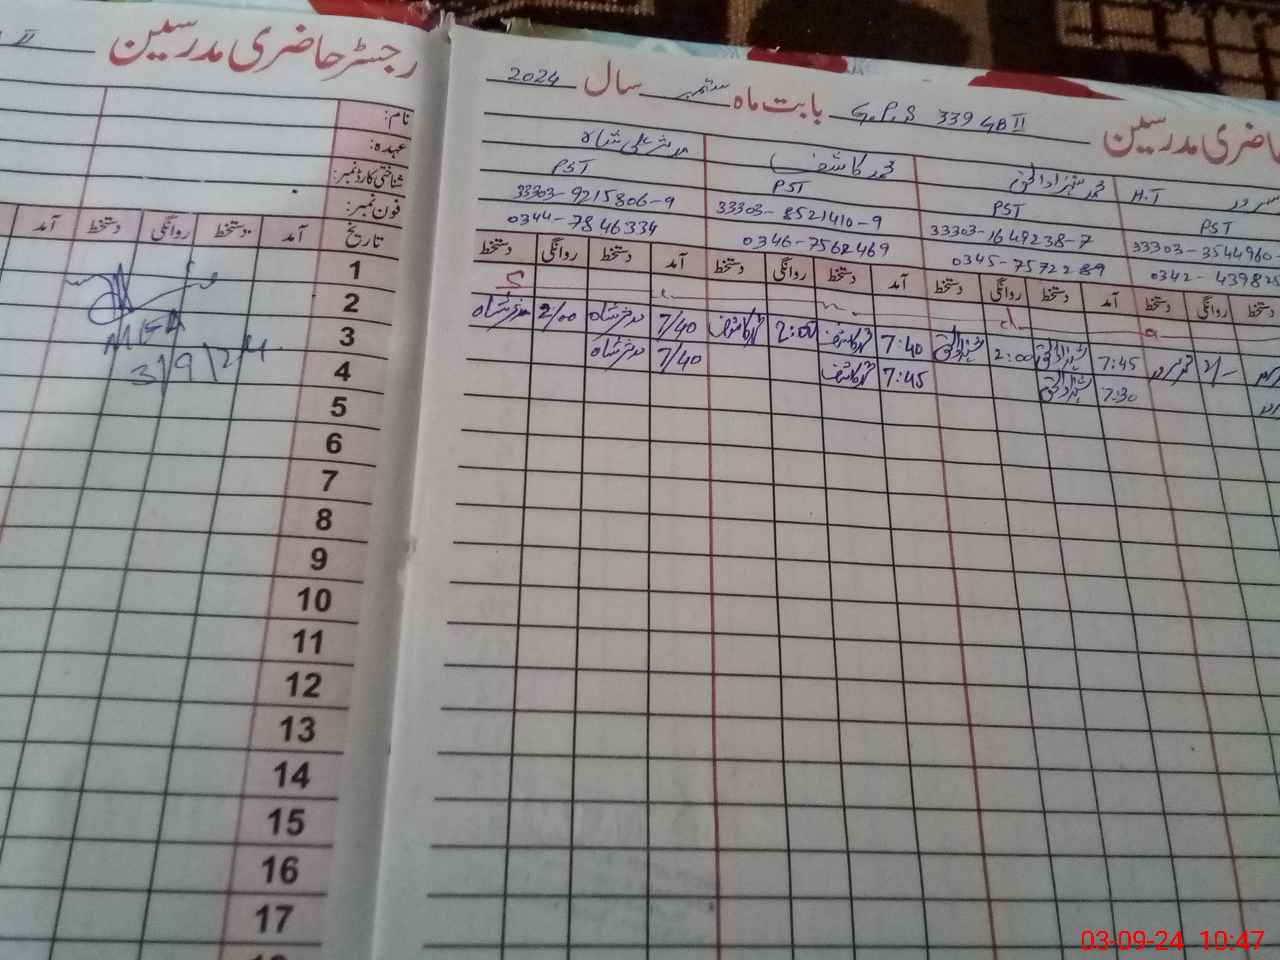 رجسٹر حاضری مدرسین
II
نام:
عہدہ:
شناختی کارڈ نمبر:
فون نمبر:
تاریخ آمد دستخط روانگی دستخط آمد
MEA
3/9/24
1
2
3
4
5
6
7
8
9
10
11
12
13
14
15
16
17
حاضری مدرسین G.P.S 339 GB II بابت ماہ ستمبر سال 2024
سرور H.T محمد شہزاد الحق محمد کاشف مدثر علی شاہ
PST PST PST PST
33303-3544960- 33303-1649238-7 33303-8521410-9 33303-9215806-9
0342-439825 0345-7572289 0346-7562469 0344-7846334
دستخط روانگی دستخط آمد دستخط روانگی دستخط آمد دستخط روانگی دستخط آمد دستخط روانگی دستخط
2/- محمد سرور 7:45 2:00 7:40 محمد کاشف 2:00 محمد کاشف 7/40 مدثر شاہ 2/00 مدثر شاہ
7:30 7:45 محمد کاشف 7/40 مدثر شاہ
03-09-24 10:47